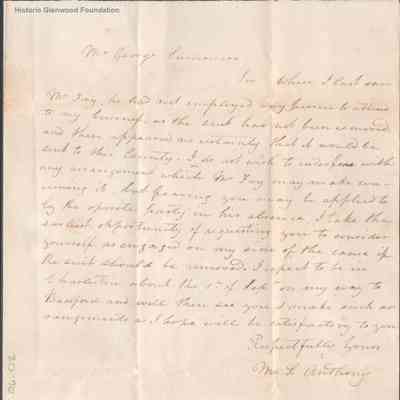 Historic Glenwood Foundation
Mr George Summers
Sir When I last saw
Mr Fry, he had not employed any person to attend
to my business, as the suit had not been removed
and there appeared no certainty that it would be
sent to this County. I do not wish to interfere with
any arrangement which Mr Fry may make con-
cerning it, but fearing you may be applied to
by the opposite party in his absence I take the
earliest opportunity of requesting you to consider
yourself as engaged on my side of the cause if
the suit should be removed. I expect to be in
Charleston about the 1st of Feb on my way to
Bedford and will then see you & make such ar-
rangements as I hope will be satisfactory to you
Respectfully Yours
Anthony